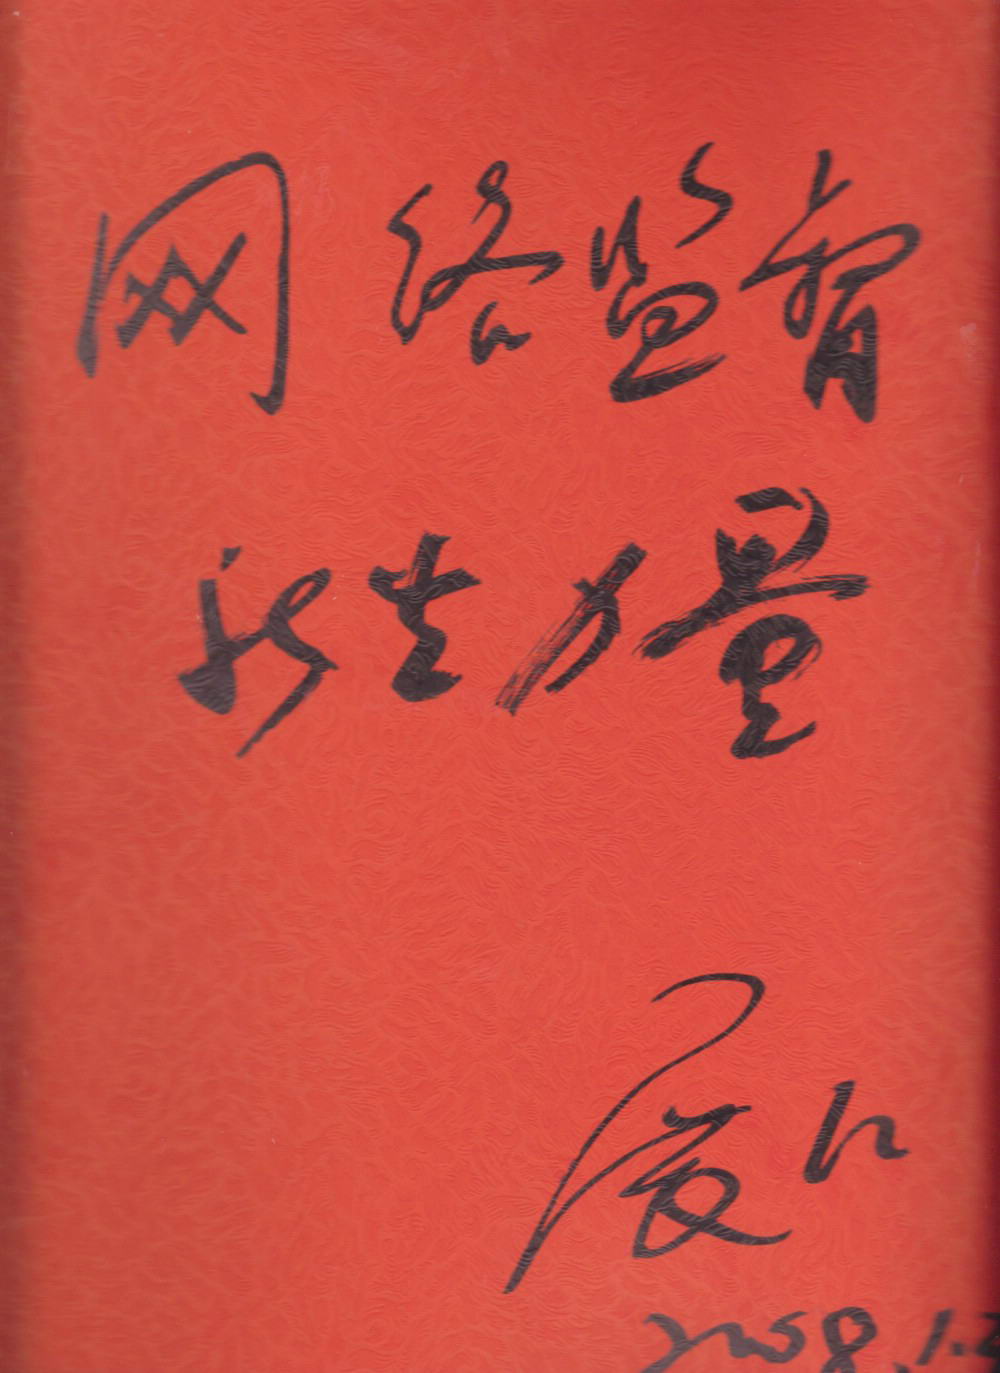 网络监督
新生力量
展江
2008.1.2